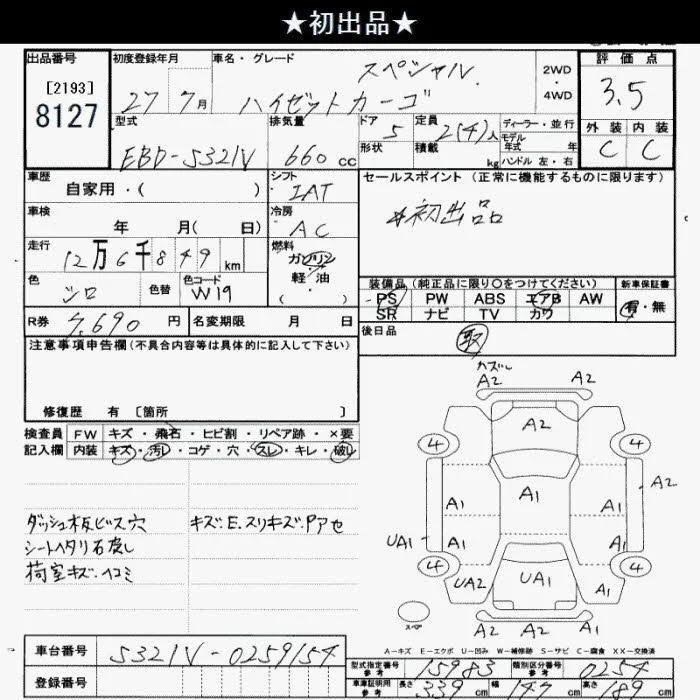 ★初出品★
出品番号 初度登録年月 車名・グレード 評価点
[2193] スペシャル 2WD
8127 27 7月 ハイゼットカーゴ 4WD 3.5
型式 排気量 ドア 5 定員 2(4)人 ディーラー・並行 外装 内装
EBD-S321V 660cc 形状 積載 kg モデル年式 年 C C
ハンドル 左・右
車歴 シフト セールスポイント (正常に機能するものに限ります)
自家用・( ) IAT *初出品
車検 冷房
年 月( 日) AC
走行 燃料
12万6千849km ガソリン
色 色替 色コード 軽・油
シロ W19 ・( ) 装備品(純正品に限り〇をつけてください) 新車保証書
PS PW ABS エアB AW 有・無
R券 7,690円 名変期限 月 日 SR ナビ TV カワ
後日品 取
注意事項申告欄(不具合内容等は具体的に記入して下さい)
修復歴 有〔箇所 〕
検査員 FW キズ・飛石・ヒビ割・リペア跡・×要
記入欄 内装 キズ・汚し・コゲ・穴・スレ・キレ・破し
ダッシュ板ビス穴 キズ:E.スリキズ:Pアセ
シートヘタリ右戻し
荷室キズ・ヘコミ
カズレ
A2 A2
A2
4 4
A1 A1 A1 A2
UA1 A1 A1
4 4
UA2 UA1 A1
スペア
A2 A2 A2
A-キズ E-エクボ U-凹み W-補修跡 S-サビ C-腐食 XX-交換済
車台番号 S321V-0259154
登録番号
型式指定番号 参考 15983 類別区分番号 参考 0254
車庫証明用 参考 長さ 339cm 幅 144cm 高さ 189cm